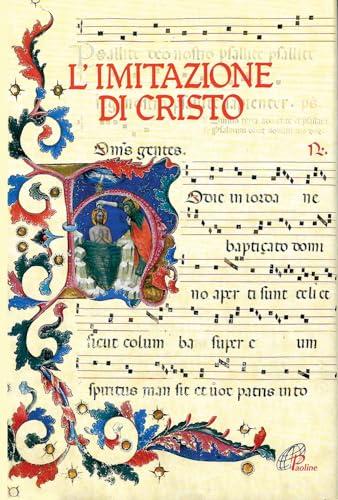 Psallite deo nostro psallite psallite
L'IMITAZIONE
DI CRISTO
ps.
Omīs gentes.
R.
Odie in iorda ne
baptiçato domi
no aper ti sunt celi et
sicut colum ba super e um
spiritus man sit et uox patris into
Paoline